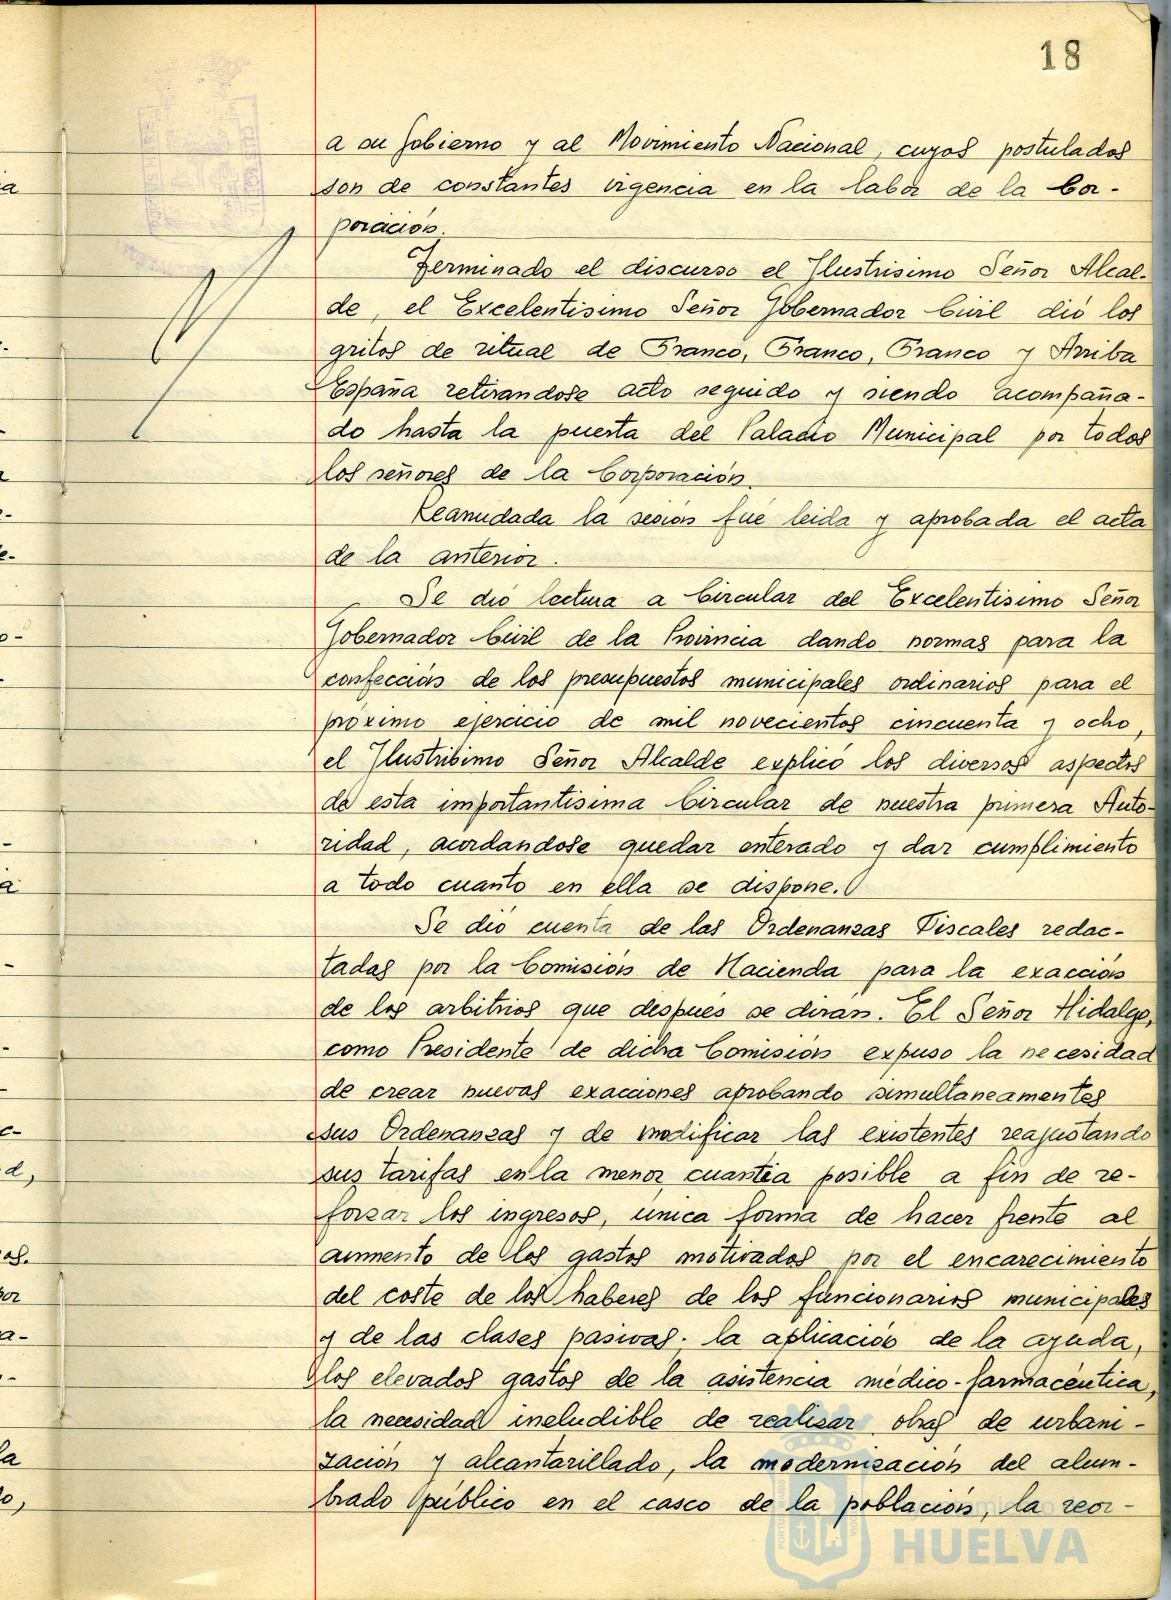 18
a su Gobierno y al Movimiento Nacional, cuyos postulados
son de constantes vigencia en la labor de la Cor-
poración.
Terminado el discurso el Ilustrisimo Señor Alcal-
de, el Excelentisimo Señor Gobernador Civil dió los
gritos de ritual de Franco, Franco, Franco y Arriba
España retirandose acto seguido y siendo acompaña-
do hasta la puerta del Palacio Municipal por todos
los señores de la Corporación.
Reanudada la sesión fué leida y aprobada el acta
de la anterior.
Se dió lectura a Circular del Excelentisimo Señor
Gobernador Civil de la Provincia dando normas para la
confección de los presupuestos municipales ordinarios para el
próximo ejercicio de mil novecientos cincuenta y ocho,
el Ilustrisimo Señor Alcalde explicó los diversos aspectos
de esta importantisima Circular de nuestra primera Auto-
ridad, acordandose quedar enterado y dar cumplimiento
a todo cuanto en ella se dispone.
Se dió cuenta de las Ordenanzas Fiscales redac-
tadas por la Comisión de Hacienda para la exacción
de los arbitrios que después se dirán. El Señor Hidalgo,
como Presidente de dicha Comisión expuso la necesidad
de crear nuevas exacciones aprobando simultaneamentes
sus Ordenanzas y de modificar las existentes reajustando
sus tarifas en la menor cuantía posible a fin de re-
forzar los ingresos, única forma de hacer frente al
aumento de los gastos motivados por el encarecimiento
del coste de los haberes de los funcionarios municipales
y de las clases pasivas. la aplicación de la ayuda,
los elevados gastos de la asistencia médico-farmacéutica,
la necesidad ineludible de realizar obras de urbani-
zación y alcantarillado, la modernización del alum-
brado público en el casco de la población, la reor-
HUELVA